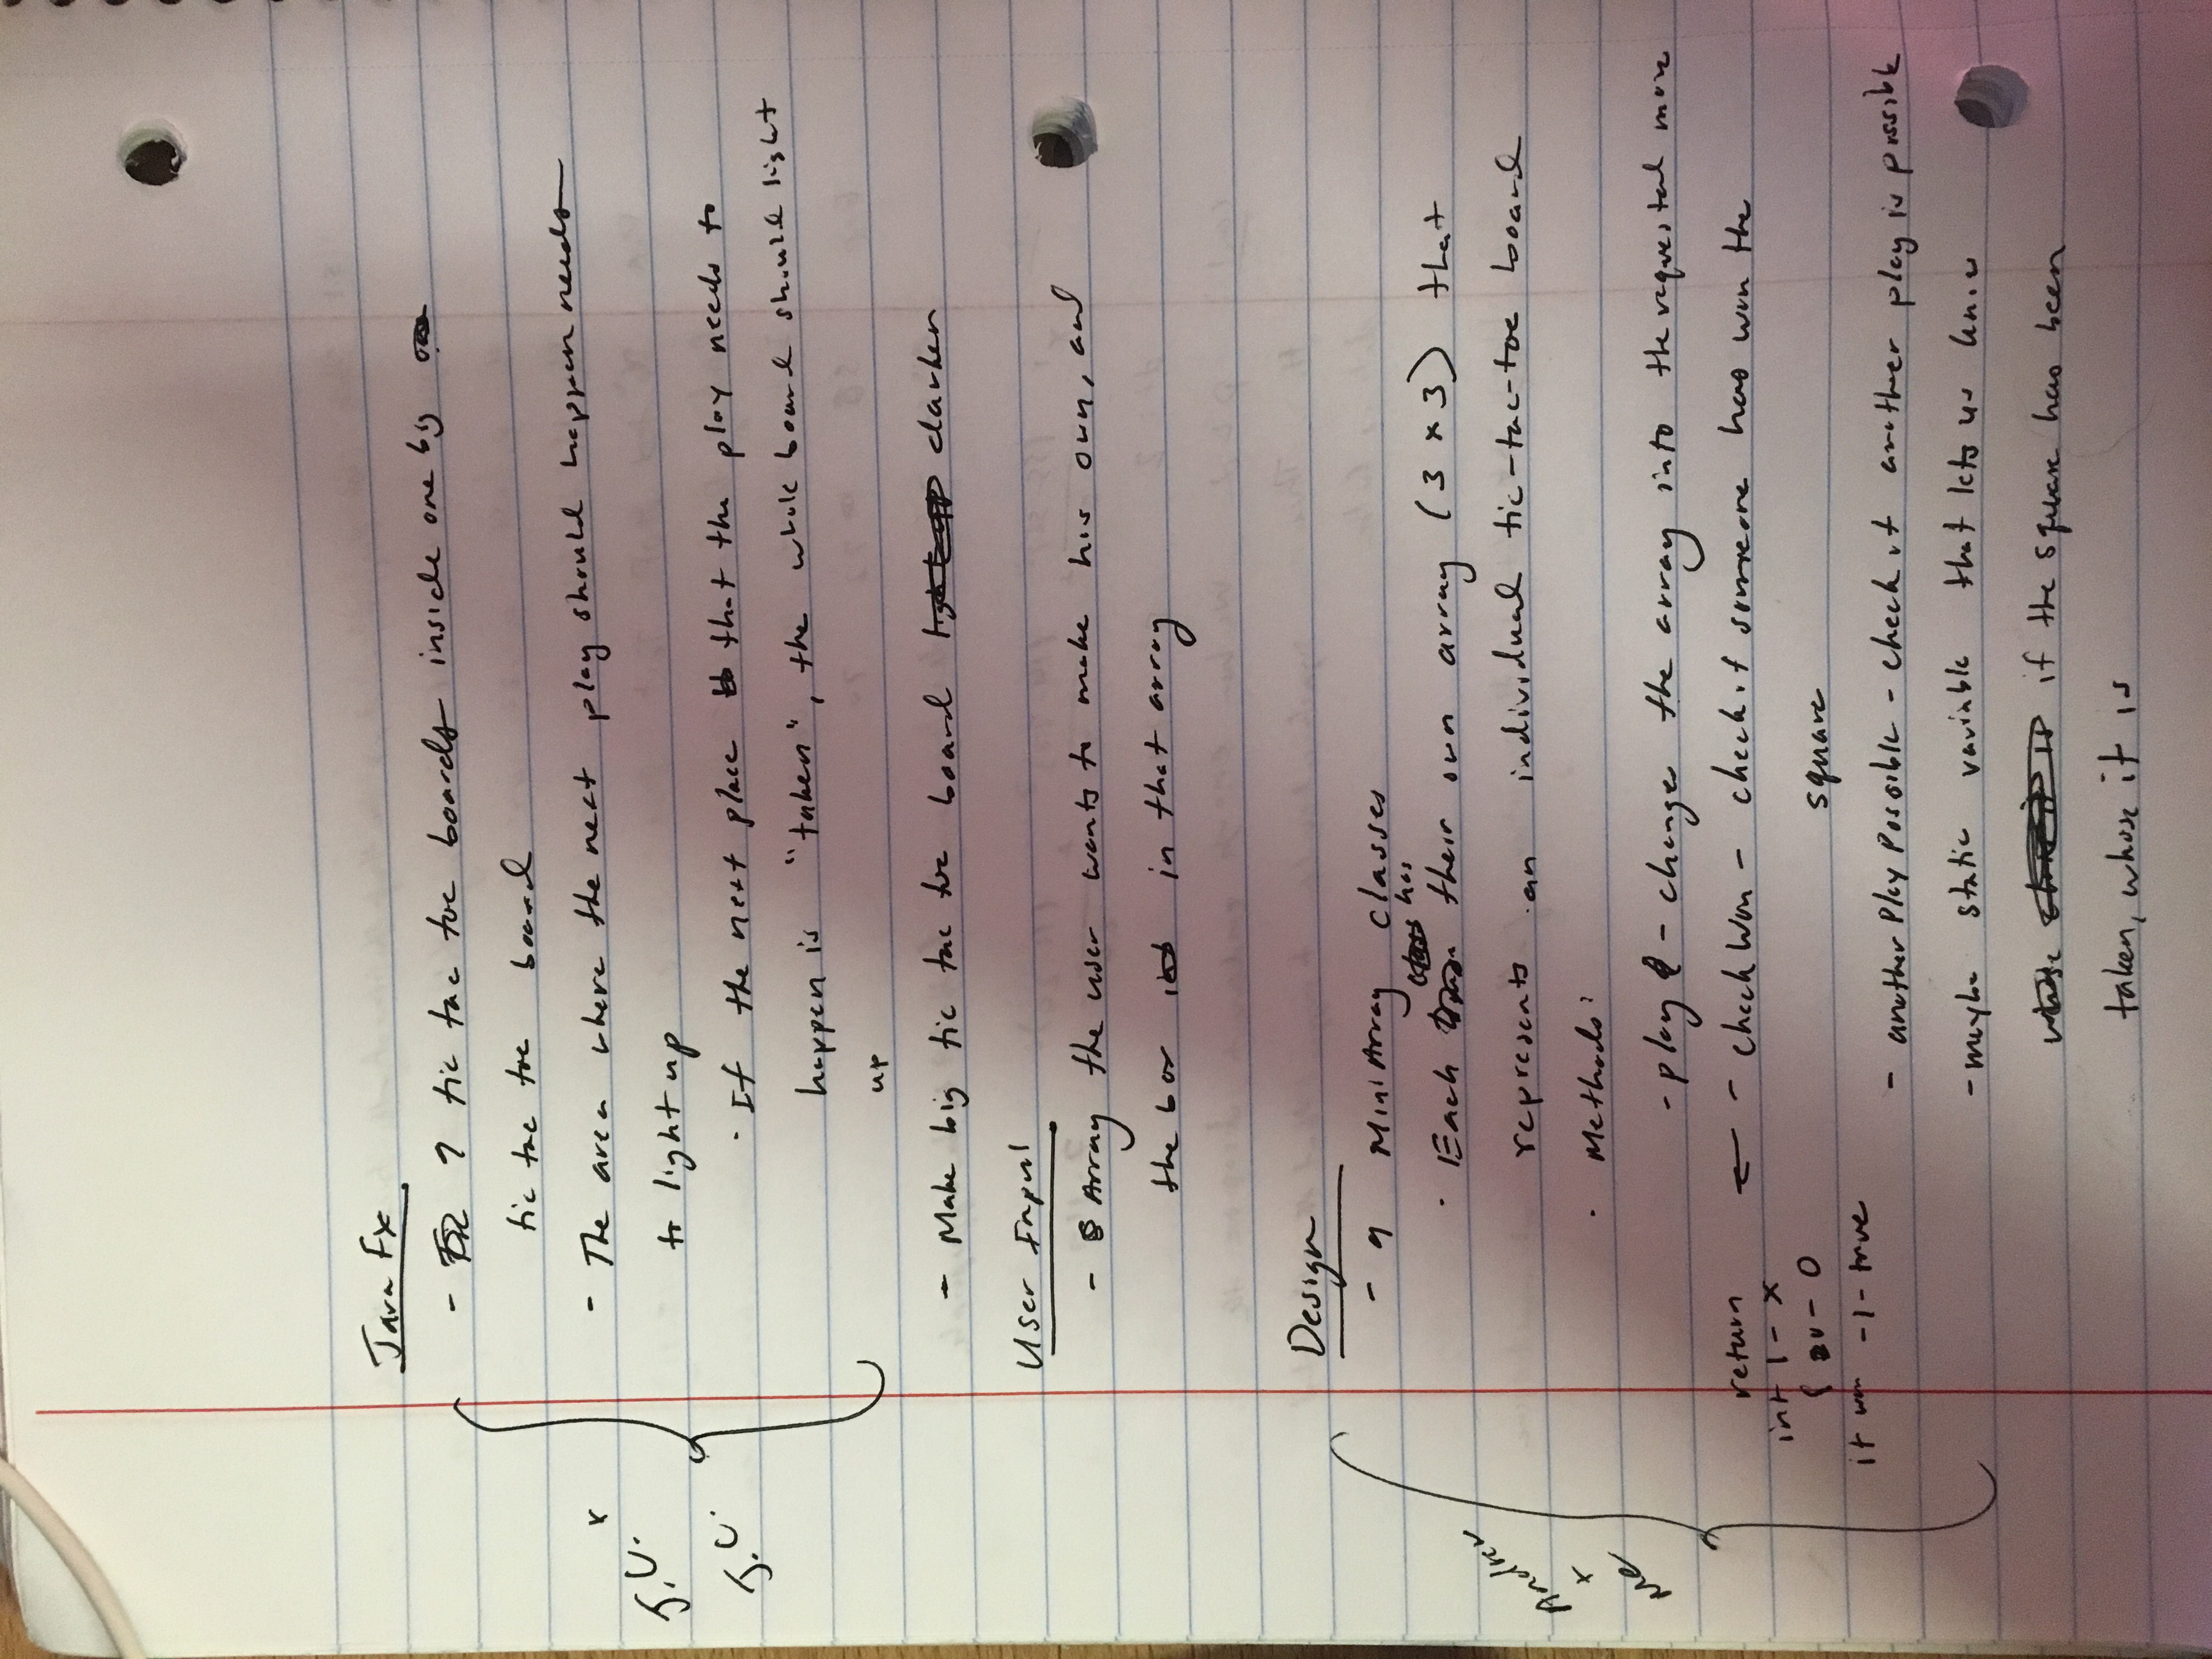 Java Fx
- 9 tic tac toe boards inside one big
tic tac toe board
- The area where the next play should happen needs
to light up
J.V. +
J.C.
· If the next place that the play needs to
happen is "taken", the whole board should light
up
- Make big tic tac toe board darker
User Input
- Array the user wants to make his own, and
the box in that array
Design
- 9 MiniArray classes
has
· Each their own array (3 x 3) that
represents an individual tic-tac-toe board
Andrew
+
Me
· Methods:
- play - changes the array into the requested move
return ← - checkWon - check if someone has won the
int 1 - X
0 - O
square
if won -1 - true
- anotherPlayPossible - check if another play is possible
- maybe static variable that lets us know
if the square has been
taken, whose it is